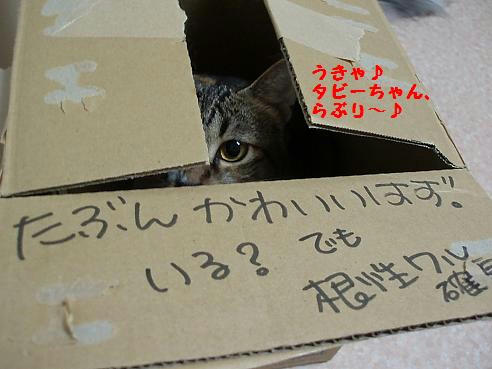 うきゃ♪
タビーちゃん、
らぶり～♪
たぶん かわいいはず。
いる? でも
根性ワル
確